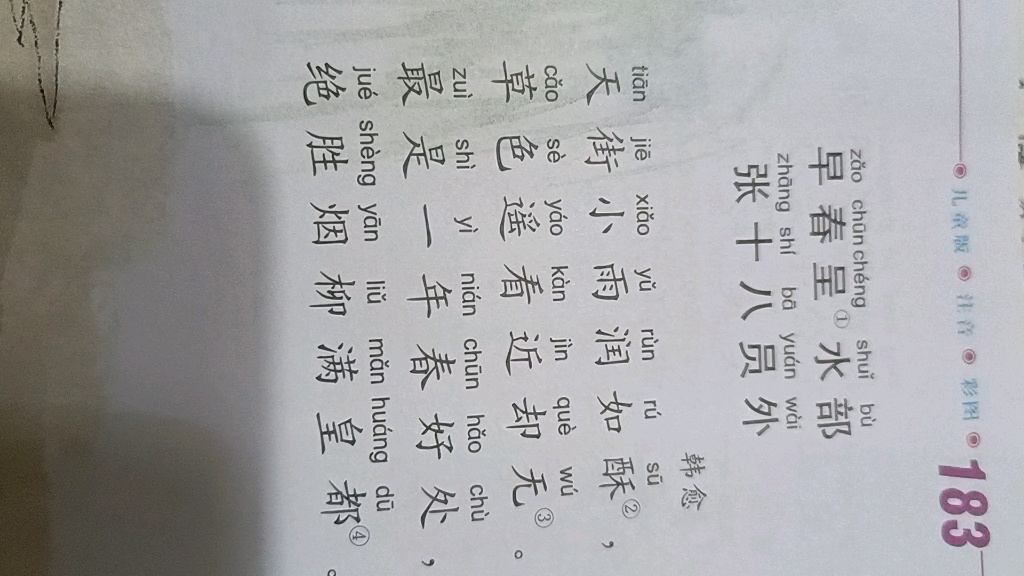 儿童版 注音 彩图 183
zǎo chūn chéng shuǐ bù
早春呈①水部
zhāng shí bā yuán wài
张十八员外
韩愈
tiān jiē xiǎo yǔ rùn rú sū
天街小雨润如酥②，
cǎo sè yáo kàn jìn què wú
草色遥看近却无③。
zuì shì yì nián chūn hǎo chù
最是一年春好处，
jué shèng yān liǔ mǎn huáng dū
绝胜烟柳满皇都④。